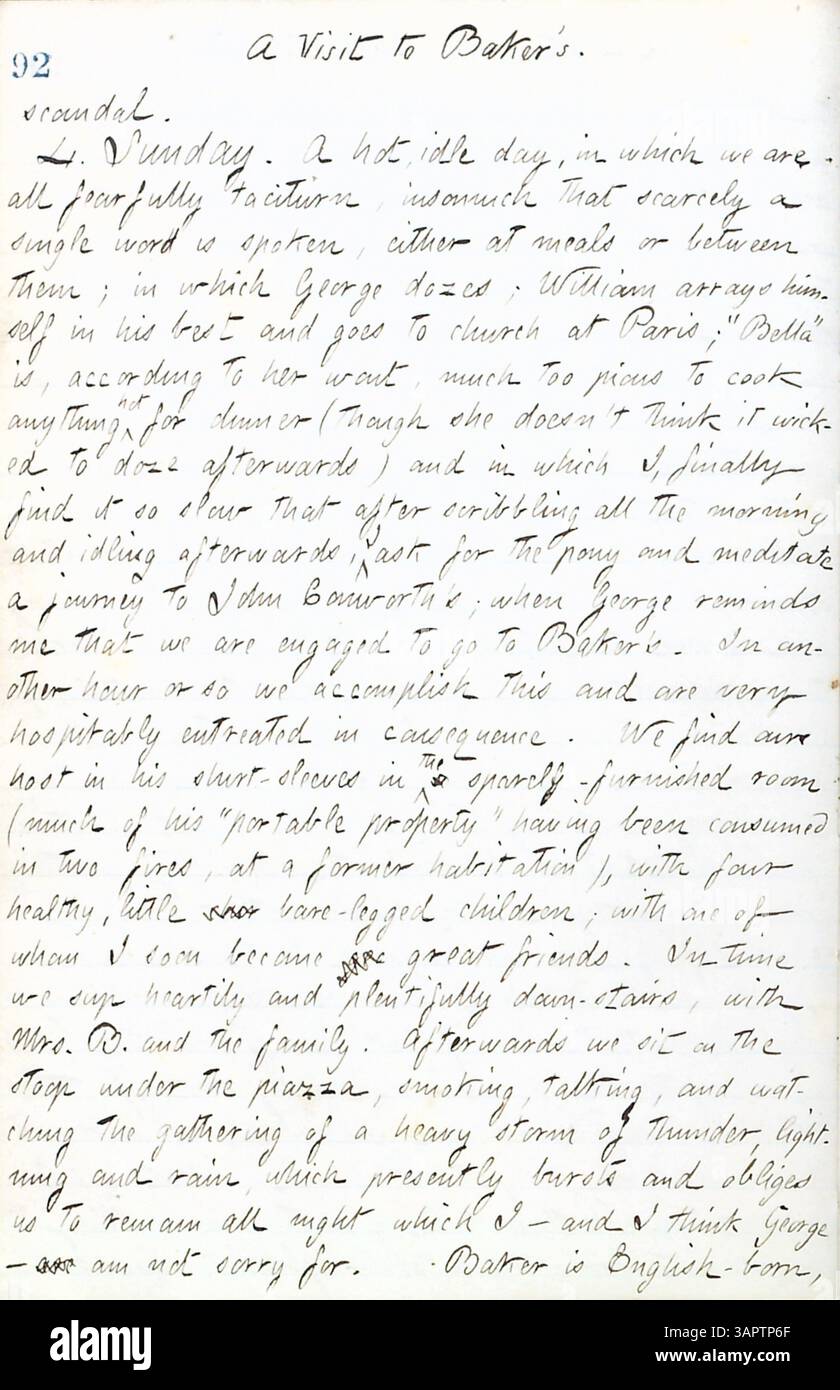 92
A Visit to Baker's.
scandal.
4. Sunday. A hot, idle day, in which we are
all fearfully taciturn, insomuch that scarcely a
single word is spoken, either at meals or between
them; in which George dozes; William arrays him-
self in his best and goes to church at Paris; "Bella"
is, according to her wont, much too pious to cook
anything hot for dinner (though she doesn't think it wick-
ed to doze afterwards) and in which I, finally
find it so slow that after scribbling all the morning
and idling afterwards, I ask for the pony and meditate
a journey to John Conworth's; when George reminds
me that we are engaged to go to Baker's. In an-
other hour or so we accomplish this and are very
hospitably entreated in consequence. We find our
host in his shirt-sleeves in the sparely-furnished room
(much of his "portable property" having been consumed
in two fires, at a former habitation), with four
healthy, little bare-legged children; with one of
whom I soon became great friends. In time
we sup heartily and plentifully down-stairs, with
Mrs. B. and the family. Afterwards we sit on the
stoop under the piazza, smoking, talking, and wat-
ching the gathering of a heavy storm of thunder, light-
ning and rain, which presently bursts and obliges
us to remain all night which I - and I think George
- am not sorry for. Baker is English-born,
alamy
Image ID: 3APTP6F
www.alamy.com